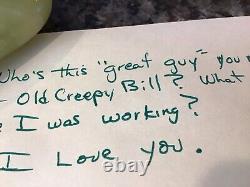 Who's this "great guy" you m
Old Creepy Bill? What
I was working?
I Love you.